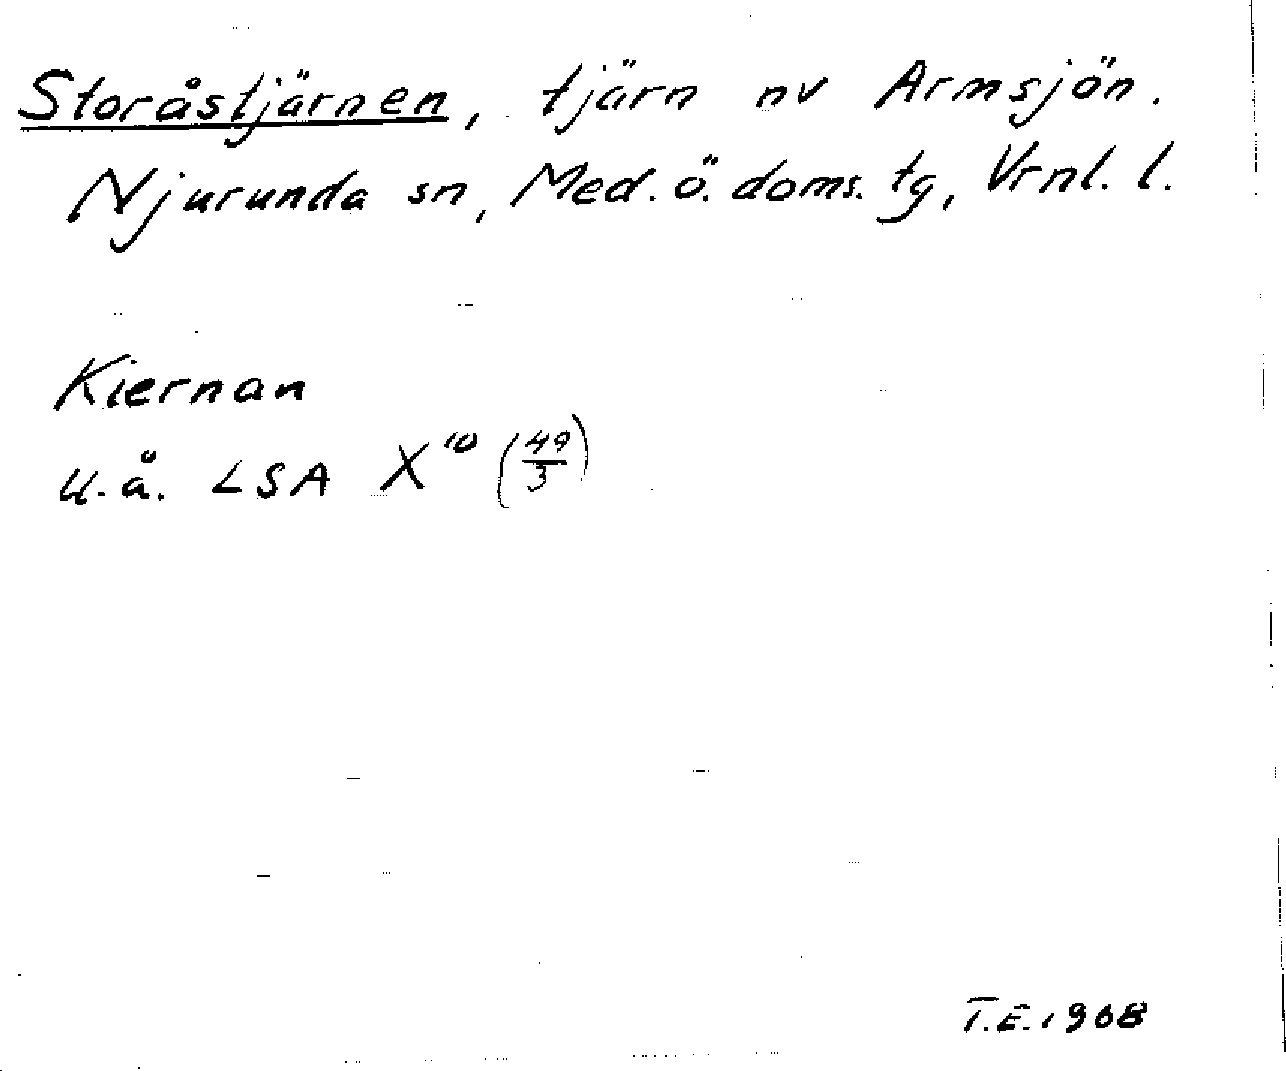 Storåstjärnen, tjärn nv Armsjön.
Njurunda sn, Med. ö. doms. tg, Vrnl. l.
Kiernan
u. å. LSA X¹⁰ (49/3)
T.E. 1968